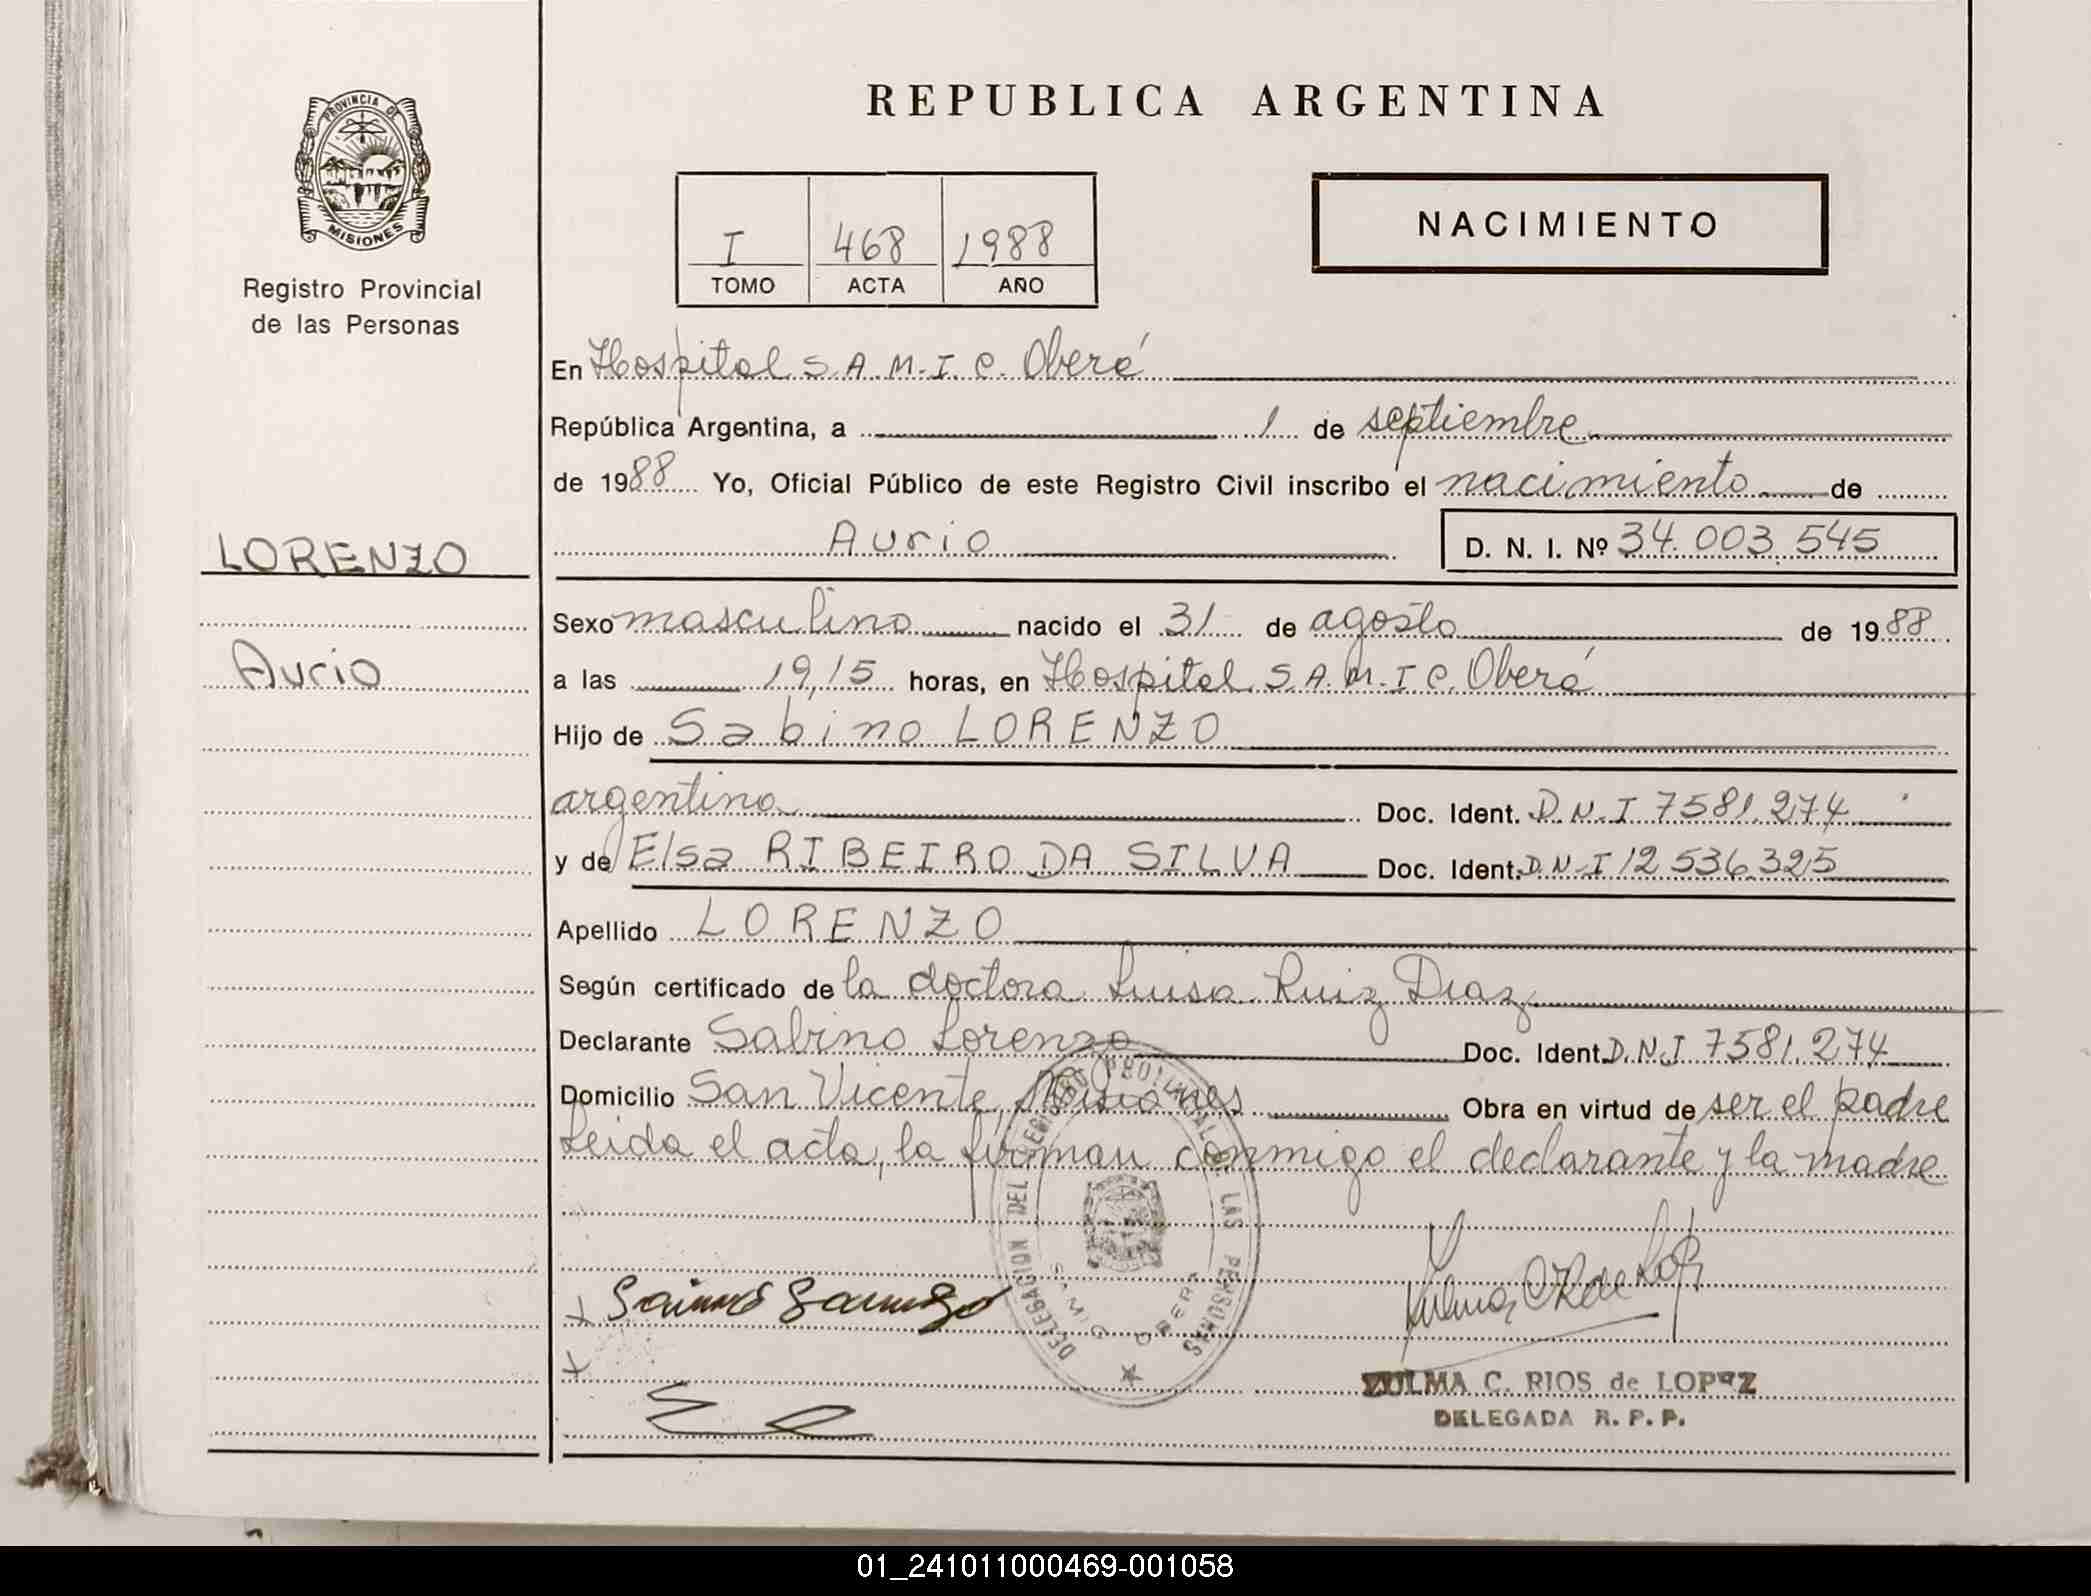 PROVINCIA DE
MISIONES
Registro Provincial
de las Personas
LORENZO
Aurio
REPUBLICA ARGENTINA
I 468 1988
TOMO ACTA AÑO
NACIMIENTO
En Hospital S.A.M.I.C. Oberá
República Argentina, a 1 de septiembre
de 1988 Yo, Oficial Público de este Registro Civil inscribo el nacimiento de
Aurio D. N. I. Nº 34.003.545
Sexo masculino nacido el 31 de agosto de 1988
a las 19,15 horas, en Hospital S.A.M.I.C. Oberá
Hijo de Sabino LORENZO
argentino Doc. Ident. D.N.I 7581.274
y de Elsa RIBEIRO DA SILVA Doc. Ident. D.N.I 12.536.325
Apellido LORENZO
Según certificado de la doctora Luisa Ruiz Diaz
Declarante Sabino Lorenzo Doc. Ident. D.N.I 7581.274
Domicilio San Vicente, Misiones Obra en virtud de ser el padre
Leida el acta, la firman conmigo el declarante y la madre
DELEGACION DEL REGISTRO PROVINCIAL DE LAS PERSONAS
SAMIC OBERA
ZULMA C. RIOS de LOPEZ
DELEGADA R. P. P.
01_241011000469-001058